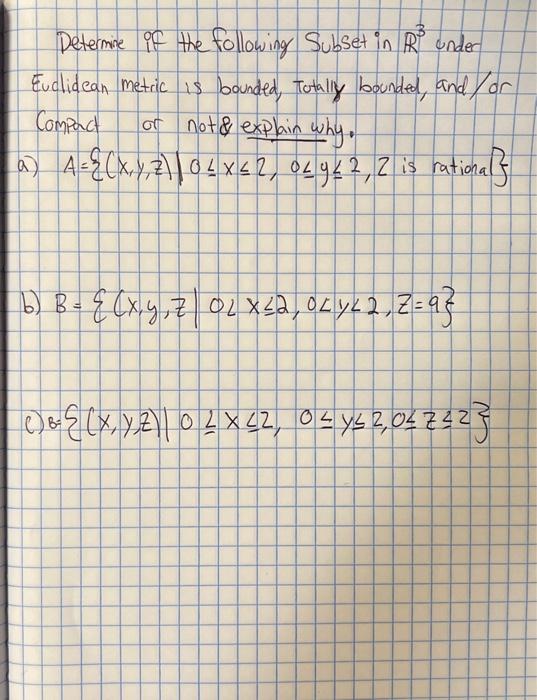 Determine if the following Subset in ℝ³ under
Euclidean metric is bounded, Totally bounded, and/or
Compact or not & explain why.
a) A={(x,y,z)|0≤x≤2, 0≤y≤2, z is rational}
b) B = {(x,y,z| 0<x≤2, 0<y<2, z=9}
c) B={(x,y,z)| 0≤x≤2, 0≤y≤2, 0≤z≤2}